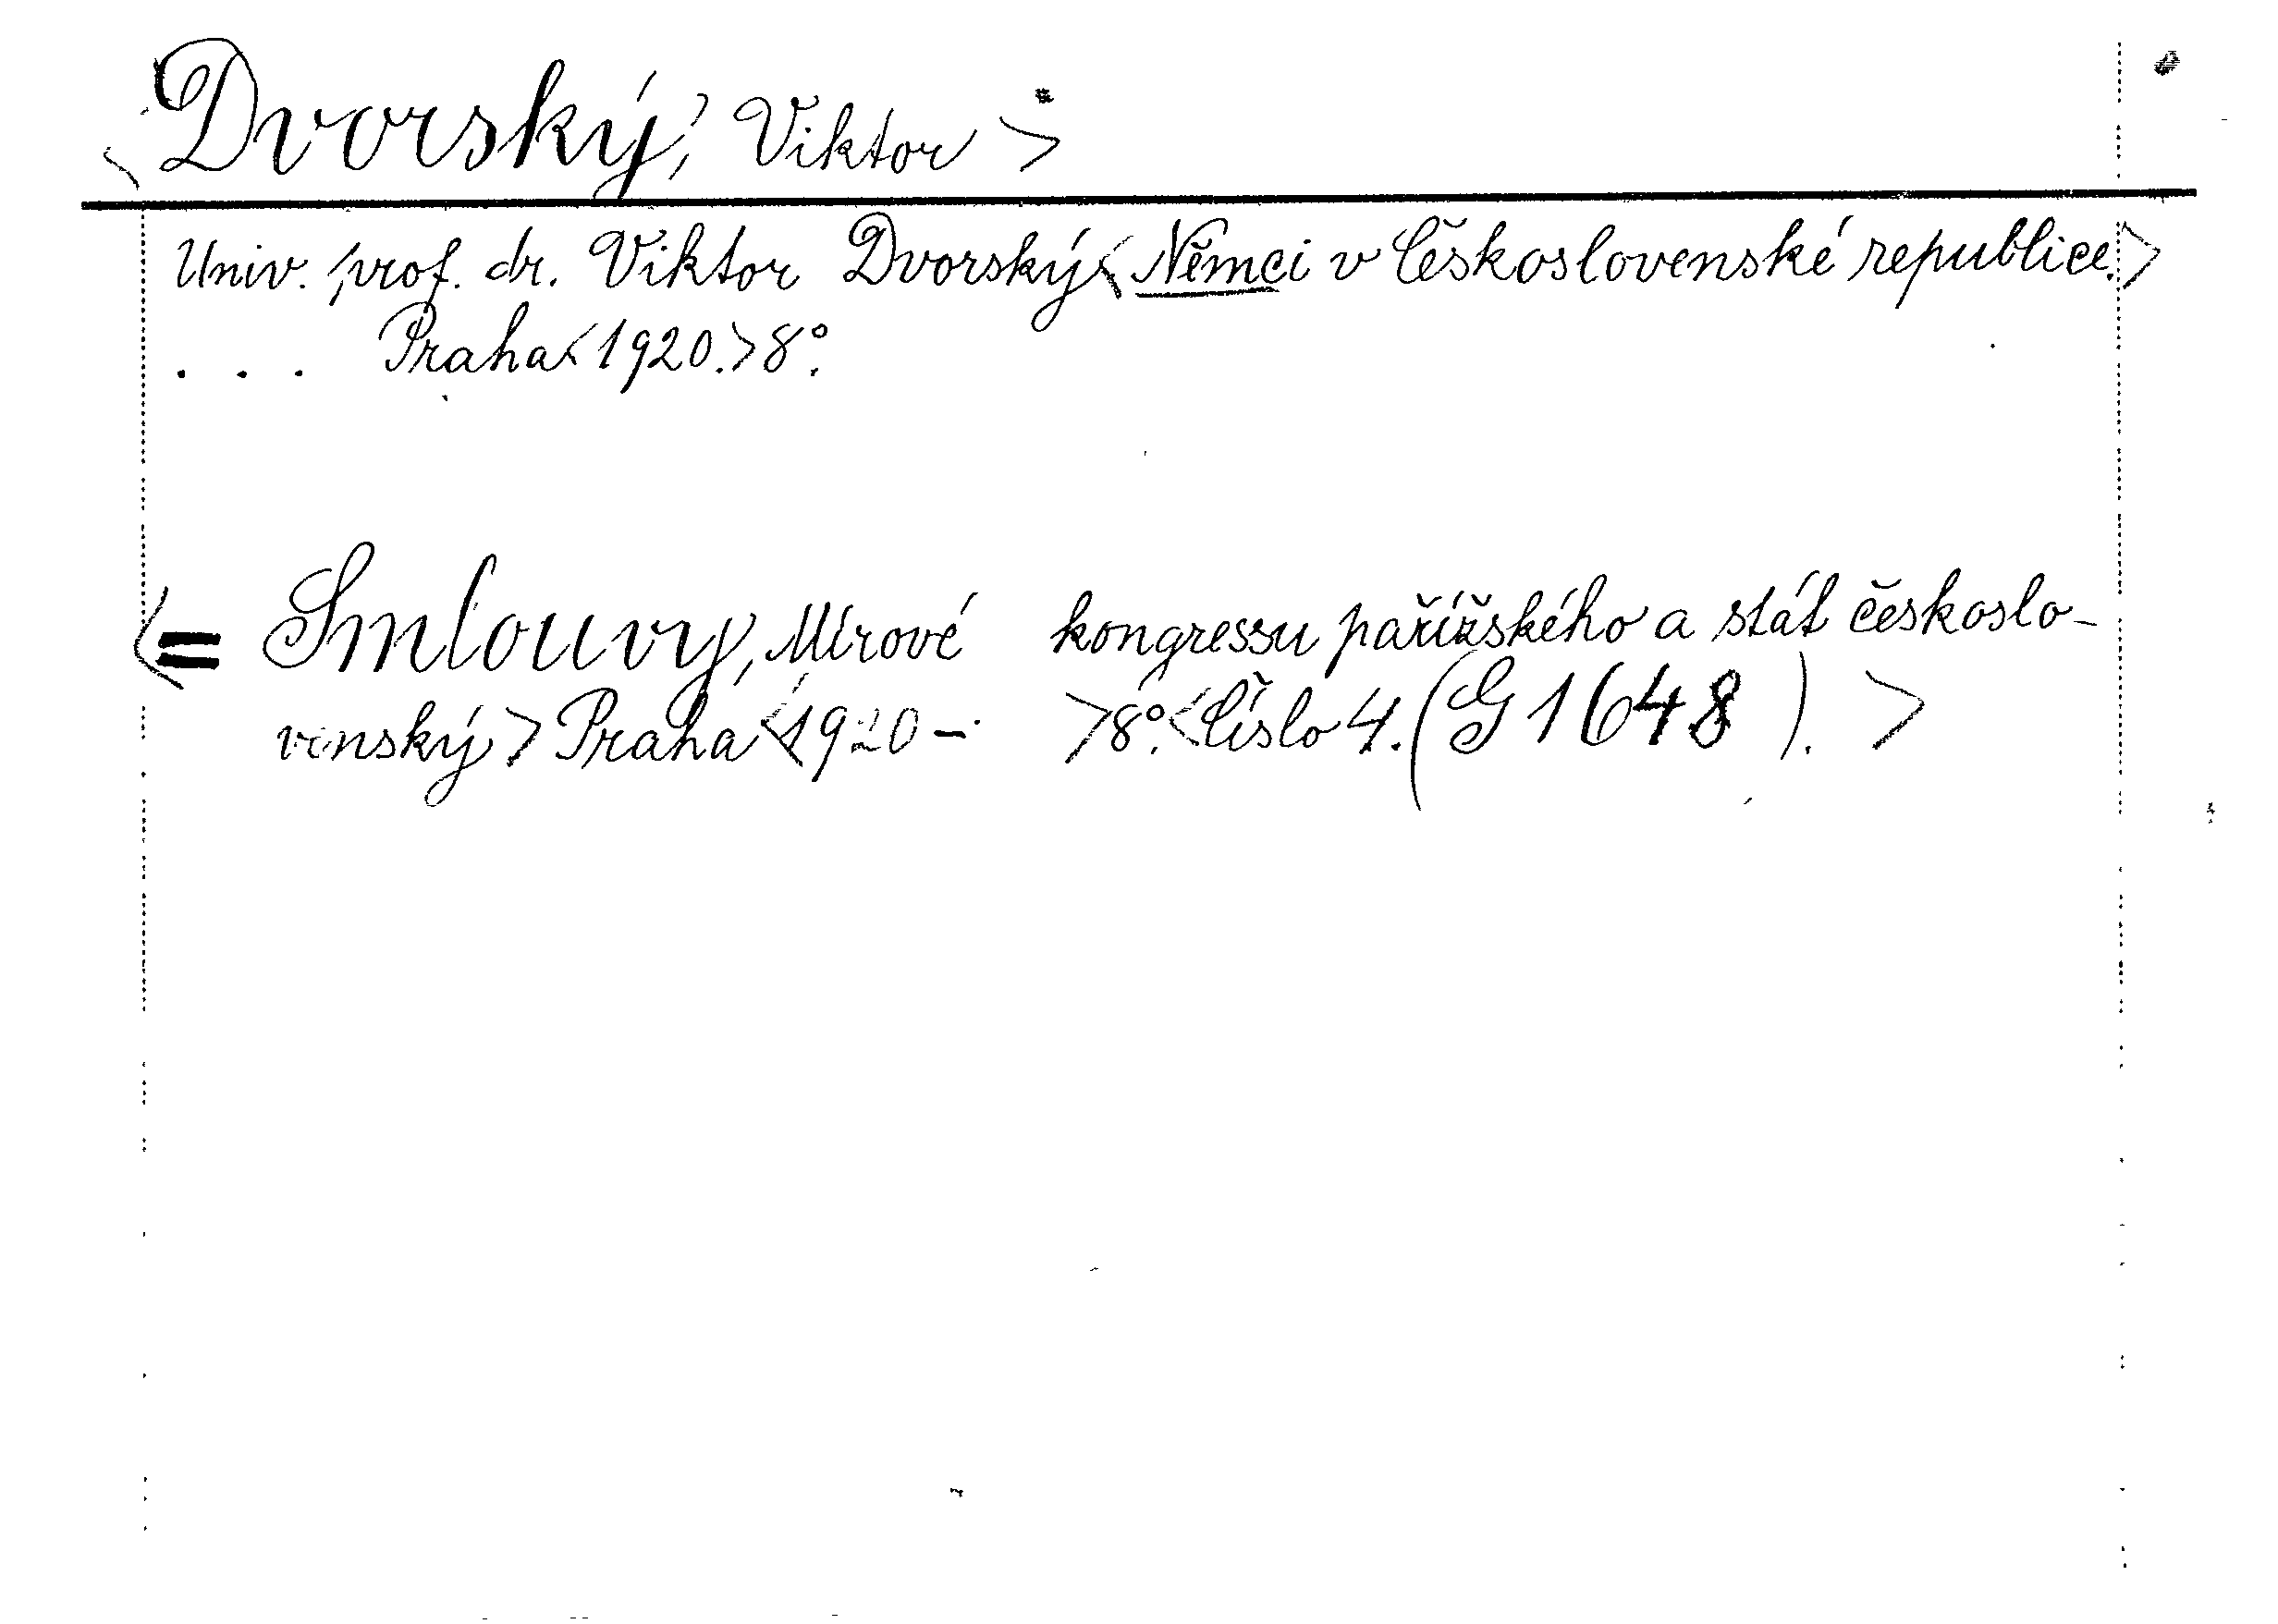 <Dvorský, Viktor>
Univ. prof. dr. Viktor Dvorský <Němci v Československé republice.>
. . . Praha <1920.> 8°.
<= Smlouvy, Mírové kongressu pařížského a stát českoslo-
venský> Praha <1920 - > 8°. <Číslo 4. (G 1648).>